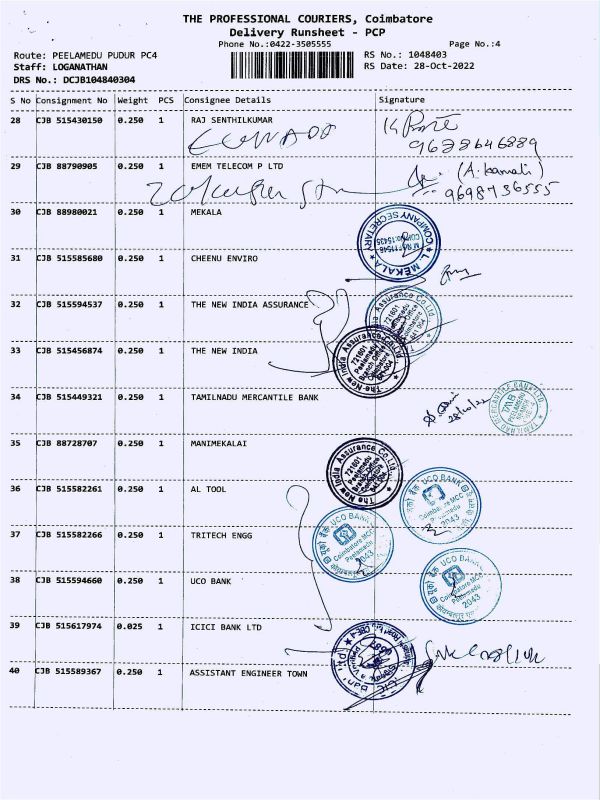 THE PROFESSIONAL COURIERS, Coimbatore
Delivery Runsheet - PCP
Phone No.:0422-3505555 Page No.:4
Route: PEELAMEDU PUDUR PC4 RS No.: 1048403
Staff: LOGANATHAN RS Date: 28-Oct-2022
DRS No.: DCJB104840304
S No Consignment No Weight PCS Consignee Details Signature
28 CJB 515430150 0.250 1 RAJ SENTHILKUMAR
29 CJB 88790905 0.250 1 EMEM TELECOM P LTD (A. Kamali)
9698736555
30 CJB 88980021 0.250 1 MEKALA
L. MEKALA
COMPANY SECRETARY
31 CJB 515585680 0.250 1 CHEENU ENVIRO
32 CJB 515594537 0.250 1 THE NEW INDIA ASSURANCE
The New India Assurance Co. Ltd.
721601
Peelamedu
Branch Office
Coimbatore
641 004
33 CJB 515456874 0.250 1 THE NEW INDIA
The New India Assurance Co. Ltd.
721601
Peelamedu
Branch Office
Coimbatore
641 004
34 CJB 515449321 0.250 1 TAMILNADU MERCANTILE BANK
28/10/22
TAMILNAD MERCANTILE BANK LTD.
TMB
35 CJB 88728707 0.250 1 MANIMEKALAI
The New India Assurance Co. Ltd.
721601
Peelamedu
Branch Office
Coimbatore
641 004
36 CJB 515582261 0.250 1 AL TOOL
यूको बैंक UCO BANK
Coimbatore MCC
Peelamedu
2043
37 CJB 515582266 0.250 1 TRITECH ENGG
यूको बैंक UCO BANK
Coimbatore MCC
Peelamedu
2043
38 CJB 515594660 0.250 1 UCO BANK
यूको बैंक UCO BANK
Coimbatore MCC
Peelamedu
2043
39 CJB 515617974 0.025 1 ICICI BANK LTD
40 CJB 515589367 0.250 1 ASSISTANT ENGINEER TOWN